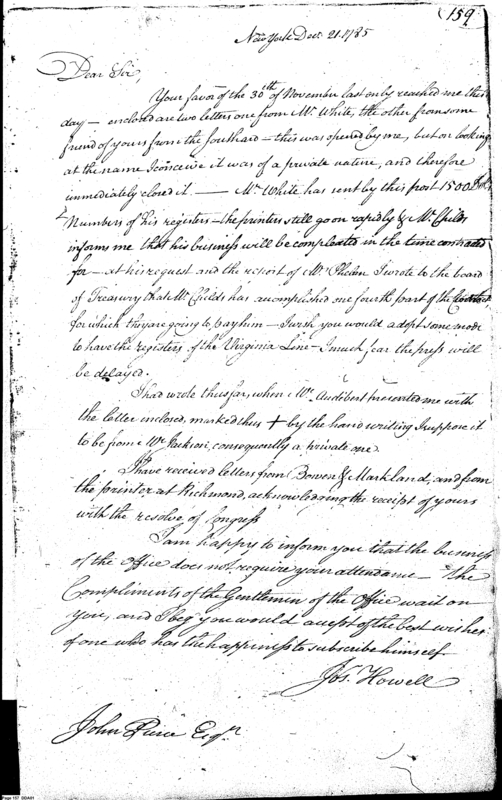 159
New York Decr 21. 1785
Dear Sir,
Your favor of the 30th of November last only reached me this
day — enclosed are two letters one from Mr White, the other from some
friend of yours from the Southard — this was opened by me, but on looking
at the name I conceive it was of a private nature, and therefore
immediately closed it — Mr White has sent by this post 1500
Numbers of his registers — the printers still go on rapidly & Mr Childs
informs me that his business will be compleated in the time contracted
for — at his request and the report of Mr Phelon I wrote to the board
of Treasury that Mr Childs has accomplished one fourth part of the Contract
for which they are going to pay him — I wish you would adopt some mode
to have the registers of the Virginia Line — I much fear the press will
be delayed.
I had wrote thus far, when Mr Audibert presented me with
the letter enclosed, marked thus + by the hand writing I suppose it
to be from Mr Jackson, consequently a private one.
I have received letters from Bowen & Markland, and from
the printer at Richmond, acknowledging the receipt of yours
with the resolve of Congress
I am happy to inform you that the business
of the office does not require your attendance — The
Compliments of the Gentlemen of the Office wait on
you, and I beg you would accept of the best wishes
of one who has the happiness to subscribe himself
Jos. Howell
John Pierce Esqr.
Page 157